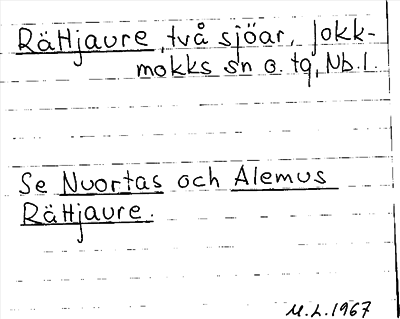 Rättjaure, två sjöar, Jokk-
mokks sn o. tg, Nb. l.
Se Nuortas och Alemus
Rättjaure.
M.L. 1967